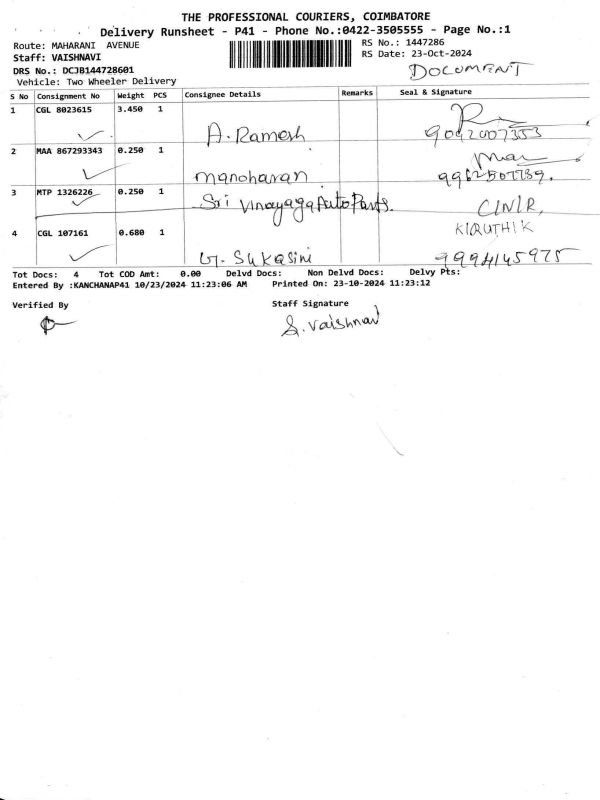 THE PROFESSIONAL COURIERS, COIMBATORE
Delivery Runsheet - P41 - Phone No.:0422-3505555 - Page No.:1
Route: MAHARANI AVENUE
RS No.: 1447286
Staff: VAISHNAVI
RS Date: 23-Oct-2024
DRS No.: DCJB144728601
DOCUMENT
Vehicle: Two Wheeler Delivery
S No Consignment No Weight PCS Consignee Details Remarks Seal & Signature
1 CGL 8023615 3.450 1
A. Ramesh 9042007353
2 MAA 867293343 0.250 1
manoharan
3 MTP 1326226 0.250 1
Sri Vinayaga Auto Parts.
4 CGL 107161 0.680 1 KIRUTHIK
G. Sukasini 9994145975
Tot Docs: 4 Tot COD Amt: 0.00 Delvd Docs: Non Delvd Docs: Delvy Pts:
Entered By :KANCHANAP41 10/23/2024 11:23:06 AM Printed On: 23-10-2024 11:23:12
Verified By Staff Signature
S. Vaishnavi